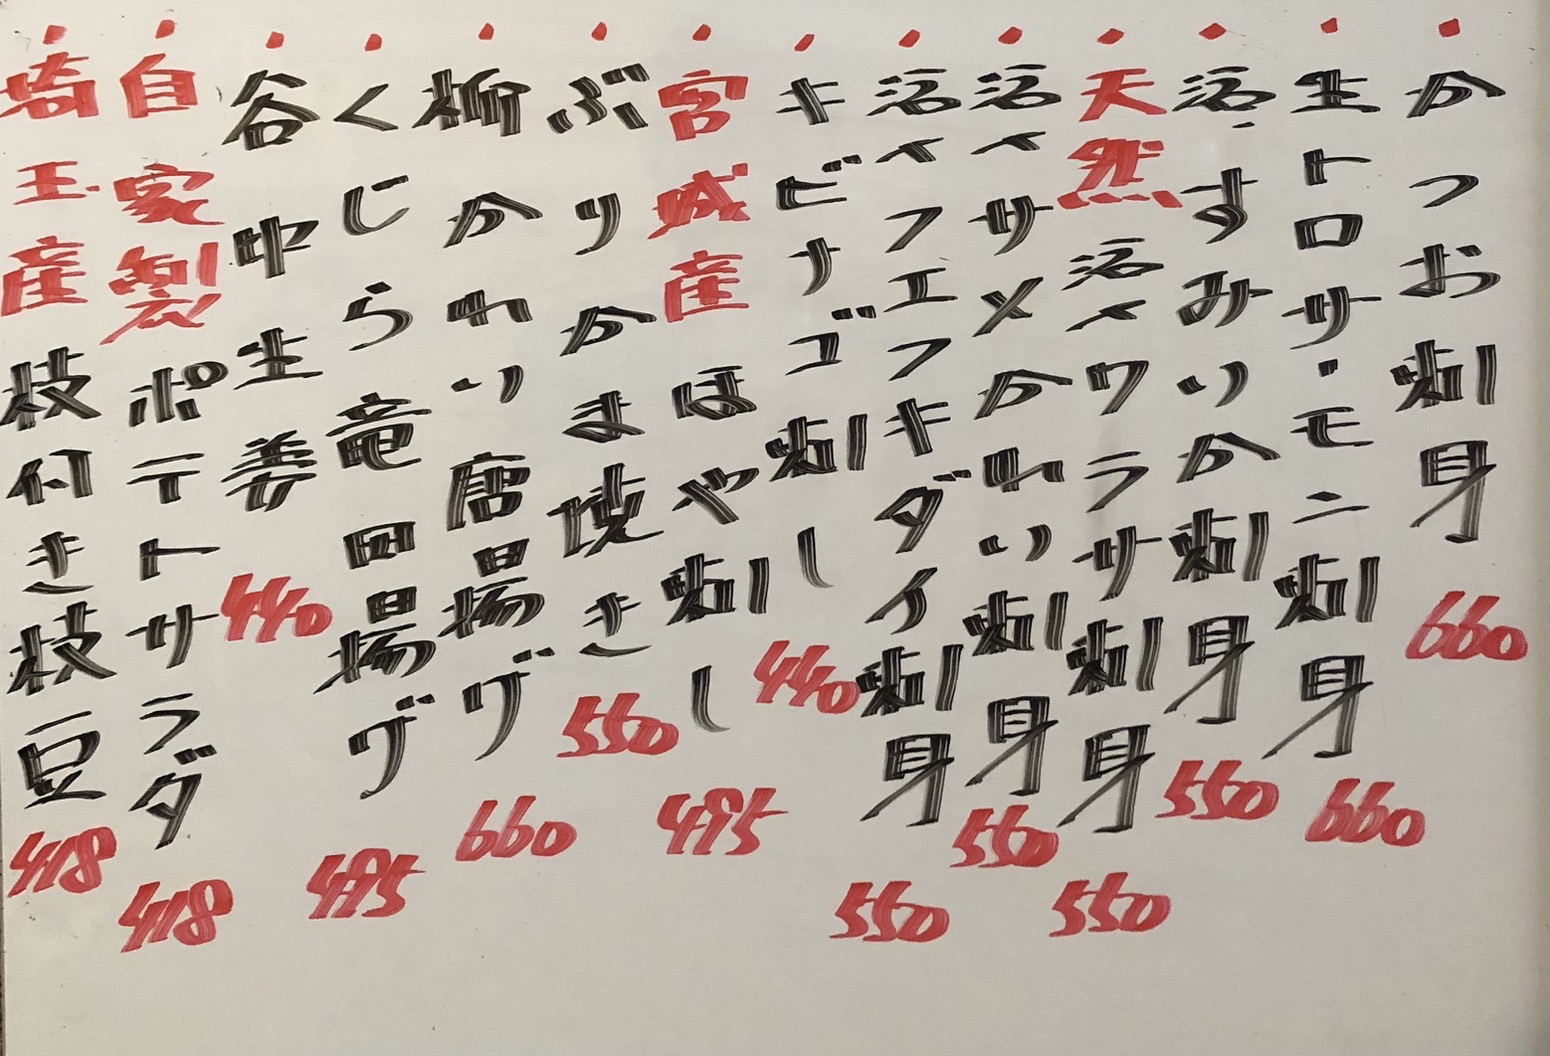 ・かつお刺身 660
・生トロサーモン刺身 660
・活〆すみいか刺身 550
・天然活〆ワラサ刺身 550
・活〆サメかれい刺身 550
・活〆フエフキダイ刺身 550
・キビナゴ刺し 440
・宮城産ほや刺し 495
・ぶりかま焼き 550
・柳かれい唐揚げ 660
・くじら竜田揚げ 495
・谷中生姜 440
・自家製ポテトサラダ 418
・埼玉産枝付き枝豆 418